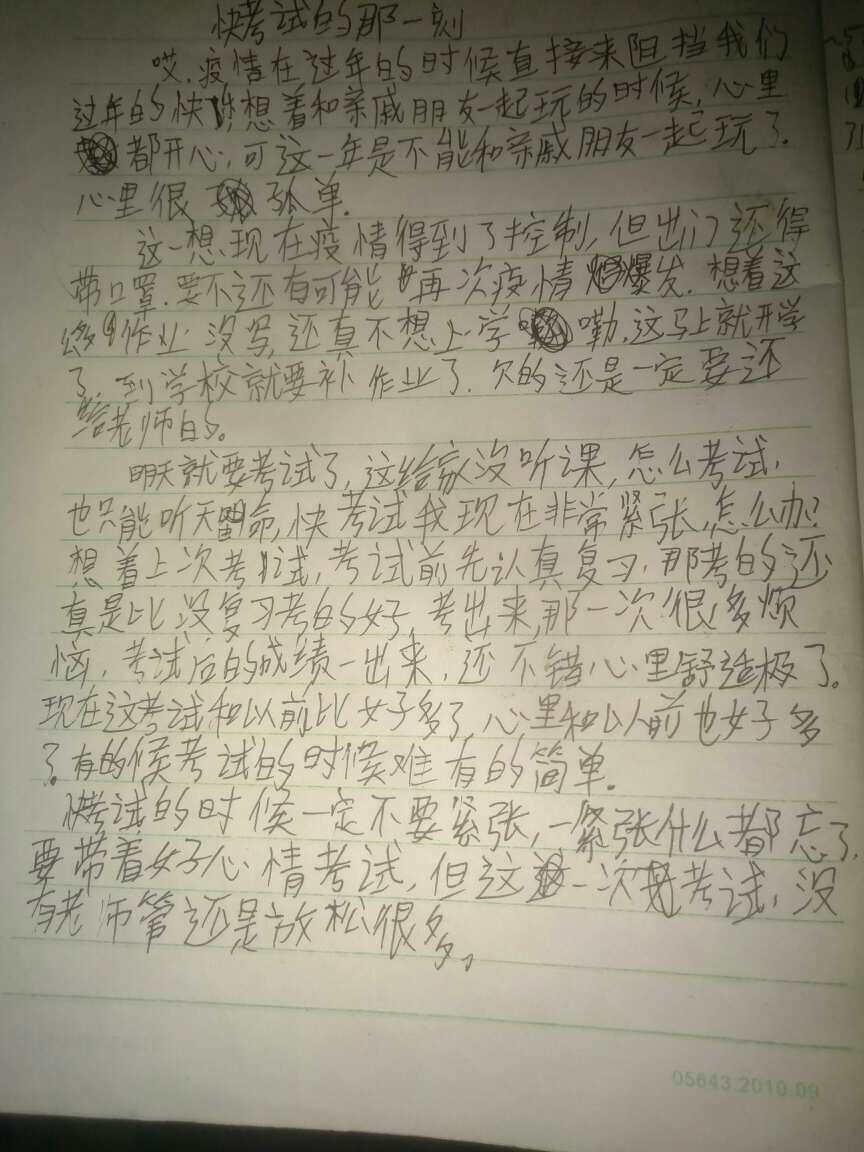 快考试的那一刻
哎.疫情在过年的时候直接来阻挡我们
过年的快 想着和亲戚朋友一起玩的时候,心里
都开心,可这一年是不能和亲戚朋友一起玩了.
心里很 孤单.
这一想现在疫情得到了控制,但出门还得
带口罩.要不还有可能 再次疫情 爆发.想着这
作业 没写,还真不想上学 嘞.这马上就开学
了,到学校就要补作业了.欠的还是一定要还
给老师的。
明天就要考试了,这给家没听课,怎么考试,
也只能听天 命,快考试我现在非常紧张,怎么办?
想着上次考试,考试前先认真复习,那考的还
真是比没复习考的好,考出来,那一次很多烦
恼,考试后的成绩一出来,还不错心里舒适极了。
现在这考试和以前比好多了,心里和以前也好多
了。有的候考试的时候难有的简单.
快考试的时候一定不要紧张,一紧张什么都忘了,
要带着好心情考试,但这 一次 考试,没
有老师管还是放松很多。
05643.2010.09